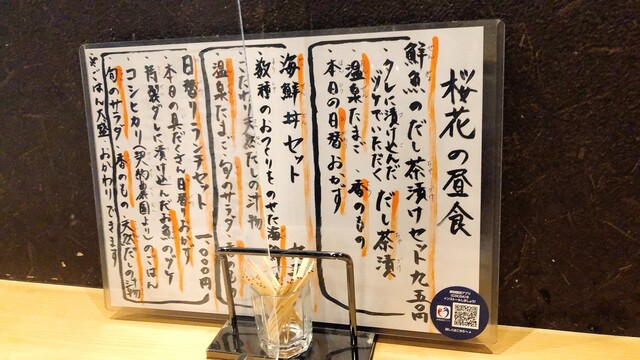 桜花の昼食
鮮魚のだし茶漬けセット九五〇円
・タレに漬け込んだ だし茶漬
・温泉たまご ・香のもの
・本日の日替おかず
海鮮丼セット
・数種のおつくりをのせた海
・こだわり天然だしの汁物
・温泉たまご ・旬のサラダ
日替りランチセット 一、〇〇〇円
・本日の具だくさん日替りおかず
・特製ダレに漬け込んだお魚のヅケ
・コシヒカリ(契約農園より)のごはん
・旬のサラダ ・香のもの ・天然だしの汁物
※ごはん大盛、おかわりできます